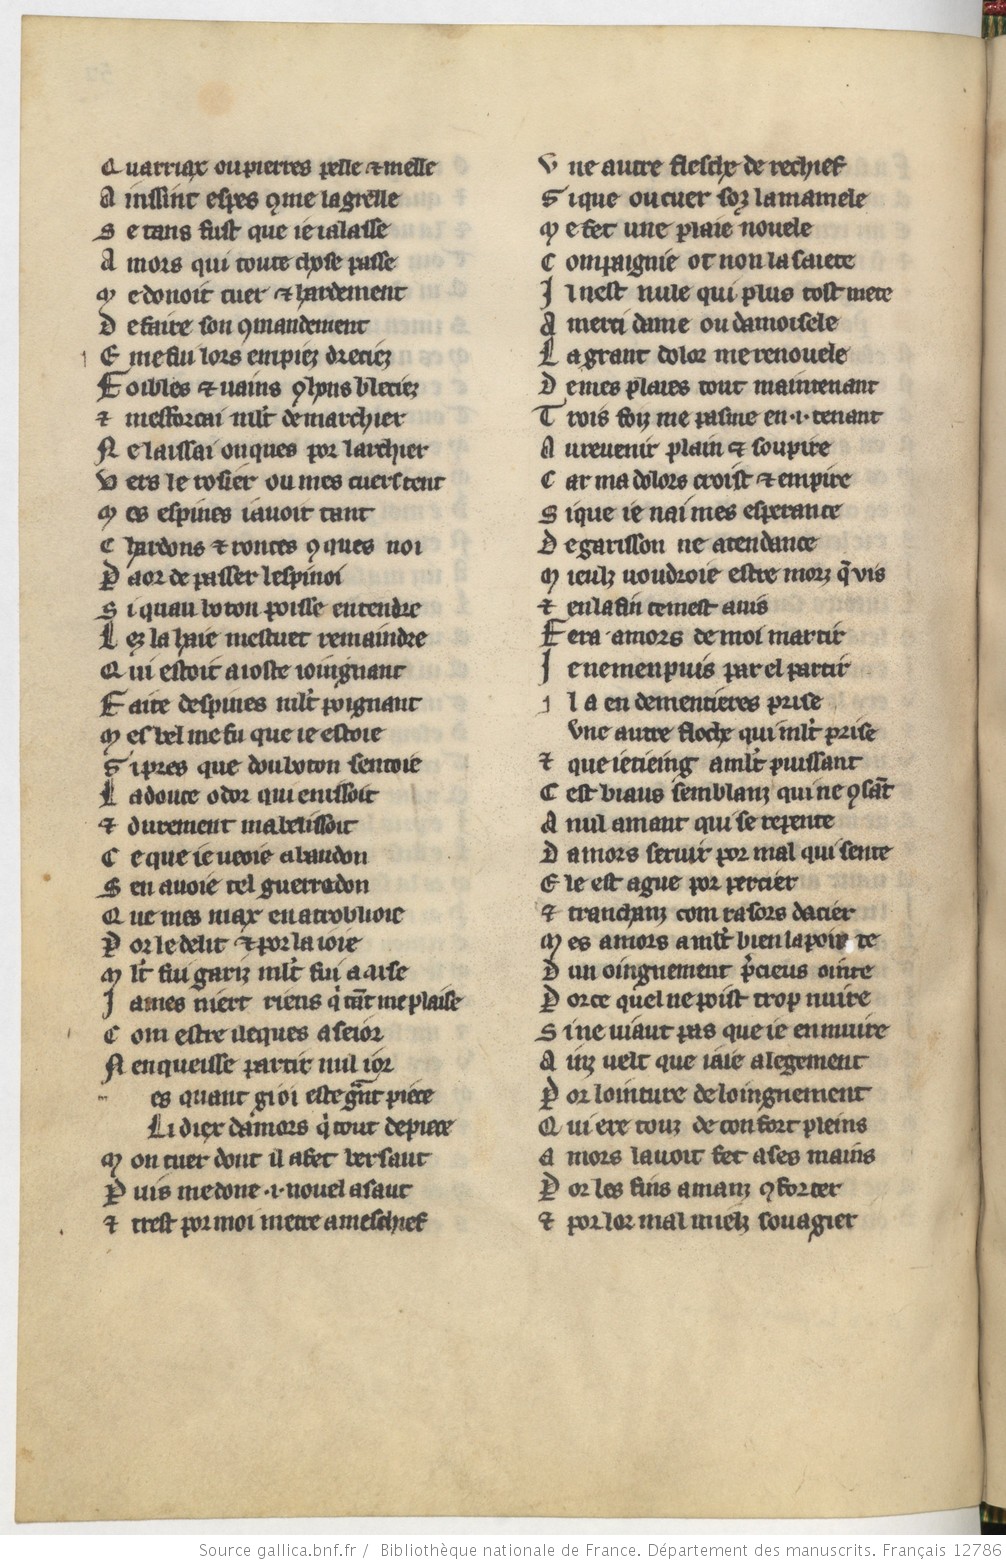 Quarriax ou pierres pelle ⁊ melle
A inssint espes ꝯme la grelle
S etans fust que ie i alasse
A mors qui toute chose passe
M e donoit cuer ⁊ hardement
D e faire son ꝯmandement
E me fu lors em piez dreciez
F oibles ⁊ uains ꝯ hons bleciez
⁊ mesforcai mlt̄ de marchier
N e laissai onques por larchier
V ers le rosier ou mes cuers tent
M es espines i auoit tant
C hardons ⁊ ronces ꝯques noi
P aor de passer lespinoi
S i quau boton poisse entendre
L ez la haie mestuet remaindre
Q ui estoit a ioste ioingnant
F aite despines mlt̄ poignant
M es bel me fu que ie estoie
S i pres que dou boton sentoie
L a douce odor qui en issoit
⁊ durement mabelissoit
C e que ie ueoie abandon
S en auoie tel guerredon
Q ue mes max en atroblioie
P or le delit ⁊ por la ioie
M lt̄ fui gariz mlt̄ fui a aise
J ames niert riens q̄ tāt me plaise
C om estre ileques a seior
N en queisse partir nul ior
es quant gi oi este grāt piece
Li diex damors q̄ tout depiece
M on cuer dont il a fet bersaut
P uis me done .i. nouel asaut
⁊ trest por moi metre a meschief
V ne autre flesche de rechief
S i que ou cuer soz la mamele
M e fet une plaie nouele
C ompaignie ot non la saiete
I l nest nule qui plus tost mete
A merci dame ou damoisele
L a grant dolor me renouele
D e mes plaies tout maintenant
T rois foiz me pasme en .i. tenant
A u reuenir plain ⁊ soupire
C ar ma dolors croist ⁊ empire
S i que ie nai mes esperance
D e garisson ne atendance
M ieulz uoudroie estre morz q̄ vis
⁊ en la fin ce mest auis
F era amors de moi martir
I e ne men puis par el partir
I l a en dementieres prise
Vne autre floche qui mlt̄ prise
⁊ que ie tieing a mlt̄ puissant
C est biaus semblanz qui ne ꝯsāt
A nul amant qui se repente
D amors seruir por mal qui sente
E le est ague por percier
⁊ tranchanz com rasors dacier
M es amors a mlt̄ bien la pointe
D un oingnement p̄cieus ointe
P or ce quel ne poist trop nuire
S i ne uiaut pas que ie en muire
A inz uelt que iaie alegement
P or lointure de loingnement
Q ui ere touz de confort pleins
A mors lauoit fet a ses mains
P or les fins amanz ꝯforter
⁊ por lor mal mielz souagier
Source gallica.bnf.fr / Bibliothèque nationale de France. Département des manuscrits. Français 12786